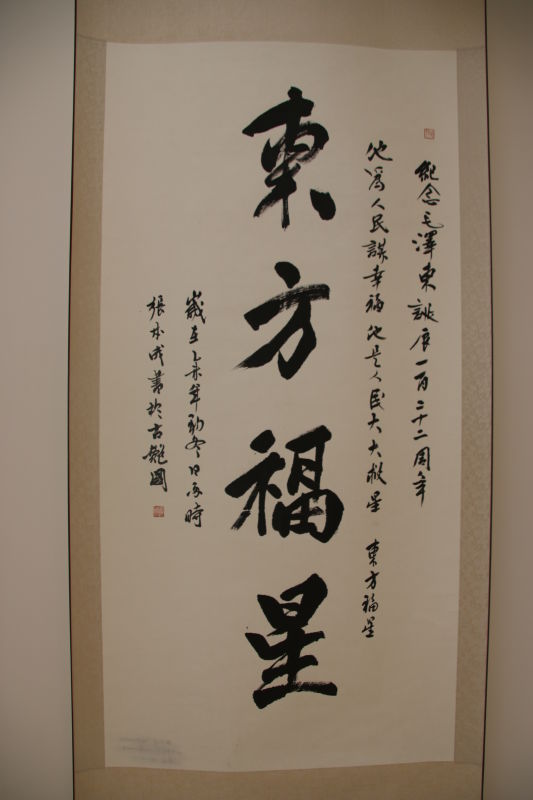 紀念毛澤東誕辰一百二十二周年
他為人民謀幸福他是人民大大救星 東方福星
東方福星
歲在乙未年初冬日辰時
張本成書於古雛國